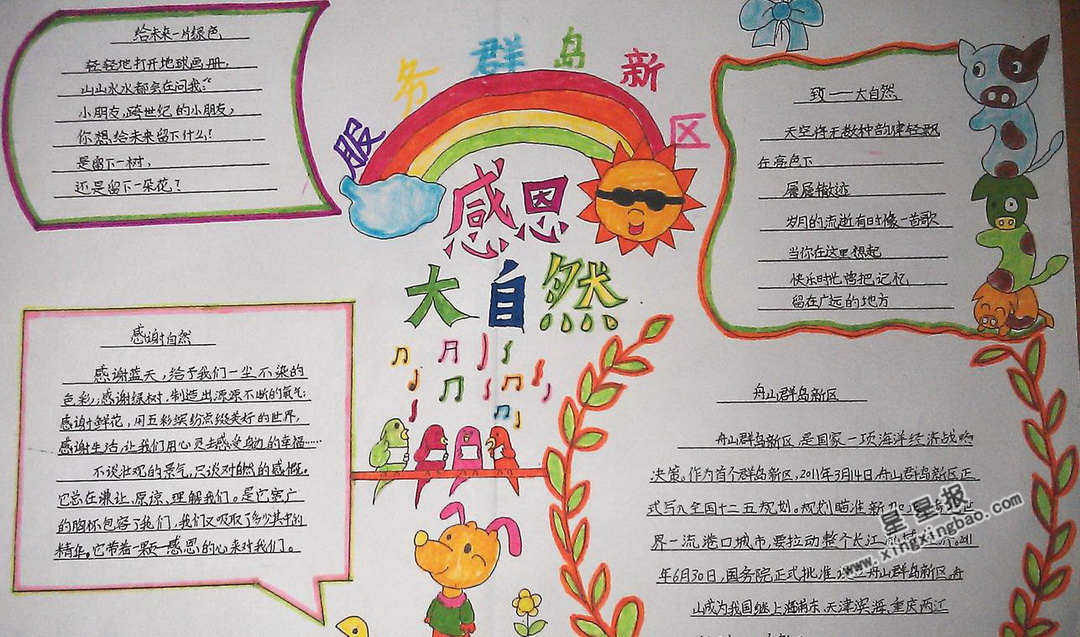 服务群岛新区
感恩
大自然
给未来一片绿色
轻轻地打开地球画册,
山山水水都会在问我:
小朋友,跨世纪的小朋友,
你想给未来留下什么!
是留下一树,
还是留下一朵花?
致——大自然
天空将无数种韵律轻歌
在亮色下
层层辙迹
岁月的流逝有时像一首歌
当你在这里想起
快乐时忙曾把记忆
留在广远的地方
感谢自然
感谢蓝天,给予我们一尘不染的
色彩,感谢绿树,制造出源源不断的氧气;
感谢鲜花,用五彩缤纷点缀美好的世界,
感谢生活,让我们用心灵去感受身边的幸福……
不谈壮观的景气,只谈对自然的感慨。
它总在谦让、原谅、理解我们。是它宽广
的胸怀包容了我们,我们又吸取了多少其中的
精华。它带着一颗感恩的心来对我们。
舟山群岛新区
舟山群岛新区,是国家一项海洋经济战略
决策。作为首个群岛新区,2011年3月14日,舟山群岛新区正
式写入全国十二五规划。规划瞄准新加
界一流港口城市,要拉动整个长江
年6月30日,国务院正式批准 舟山群岛新区,舟
山成为我国继上海浦东、天津滨海、重庆两江
星星报
www.xingxingbao.com